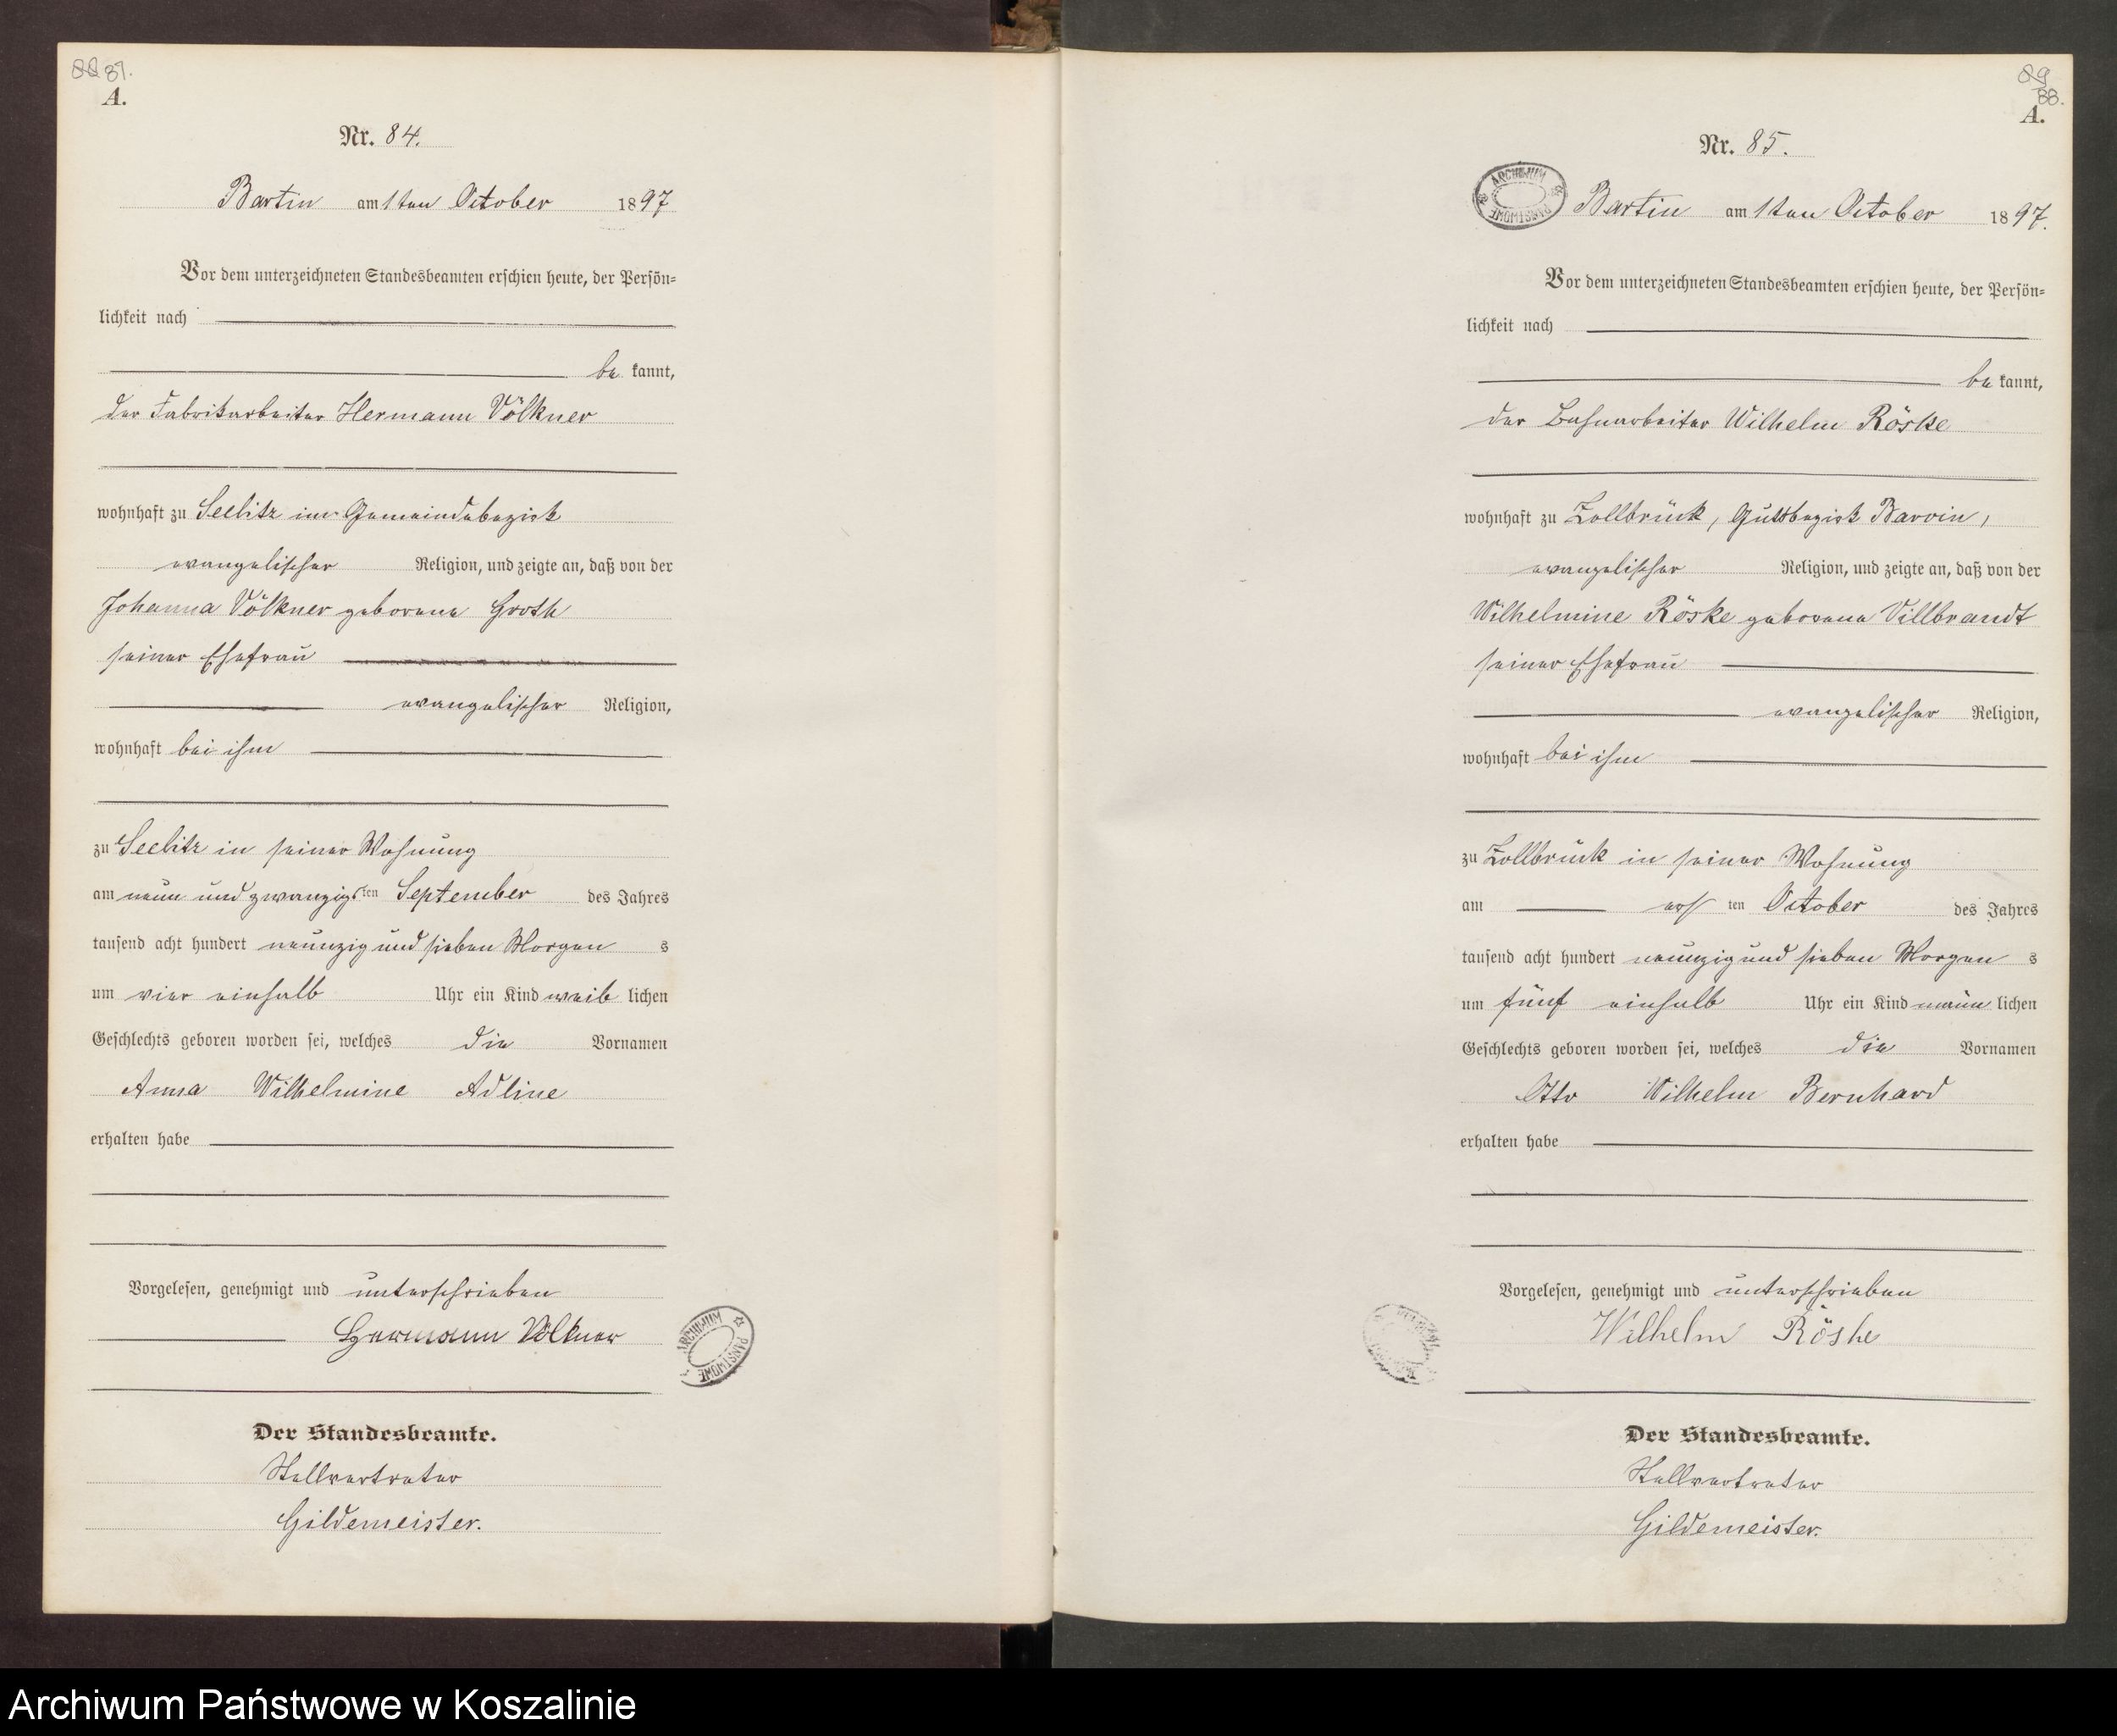 88 87.
A.
Nr. 84.
Bartin am 1ten October 1897
Vor dem unterzeichneten Standesbeamten erschien heute, der Persön-
lichkeit nach
be kannt,
der Fabrikarbeiter Hermann Völkner
wohnhaft zu Seelitz im Gemeindebezirk
evangelischer Religion, und zeigte an, daß von der
Johanna Völkner geborene Groth
seiner Ehefrau
evangelischer Religion,
wohnhaft bei ihm
zu Seelitz in seiner Wohnung
am neun und zwanzigsten September des Jahres
tausend acht hundert neunzig und sieben Morgen s
um vier einhalb Uhr ein Kind weib lichen
Geschlechts geboren worden sei, welches die Vornamen
Anna Wilhelmine Adline
erhalten habe
Vorgelesen, genehmigt und unterschrieben
Hermann Völkner
ARCHIWUM PAŃSTWOWE
Der Standesbeamte.
Stellvertreter
Gildemeister.
89
88.
A.
Nr. 85.
ARCHIWUM PAŃSTWOWE
Bartin am 1ten October 1897.
Vor dem unterzeichneten Standesbeamten erschien heute, der Persön-
lichkeit nach
be kannt,
der Bahnarbeiter Wilhelm Röske
wohnhaft zu Zollbrück, Gutsbezirk Barvin,
evangelischer Religion, und zeigte an, daß von der
Wilhelmine Röske geborene Villbrandt
seiner Ehefrau
evangelischer Religion,
wohnhaft bei ihm
zu Zollbrück in seiner Wohnung
am ersten October des Jahres
tausend acht hundert neunzig und sieben Morgen s
um fünf einhalb Uhr ein Kind männ lichen
Geschlechts geboren worden sei, welches die Vornamen
Otto Wilhelm Bernhard
erhalten habe
Vorgelesen, genehmigt und unterschrieben
Wilhelm Röske
Der Standesbeamte.
Stellvertreter
Gildemeister.
Archiwum Państwowe w Koszalinie